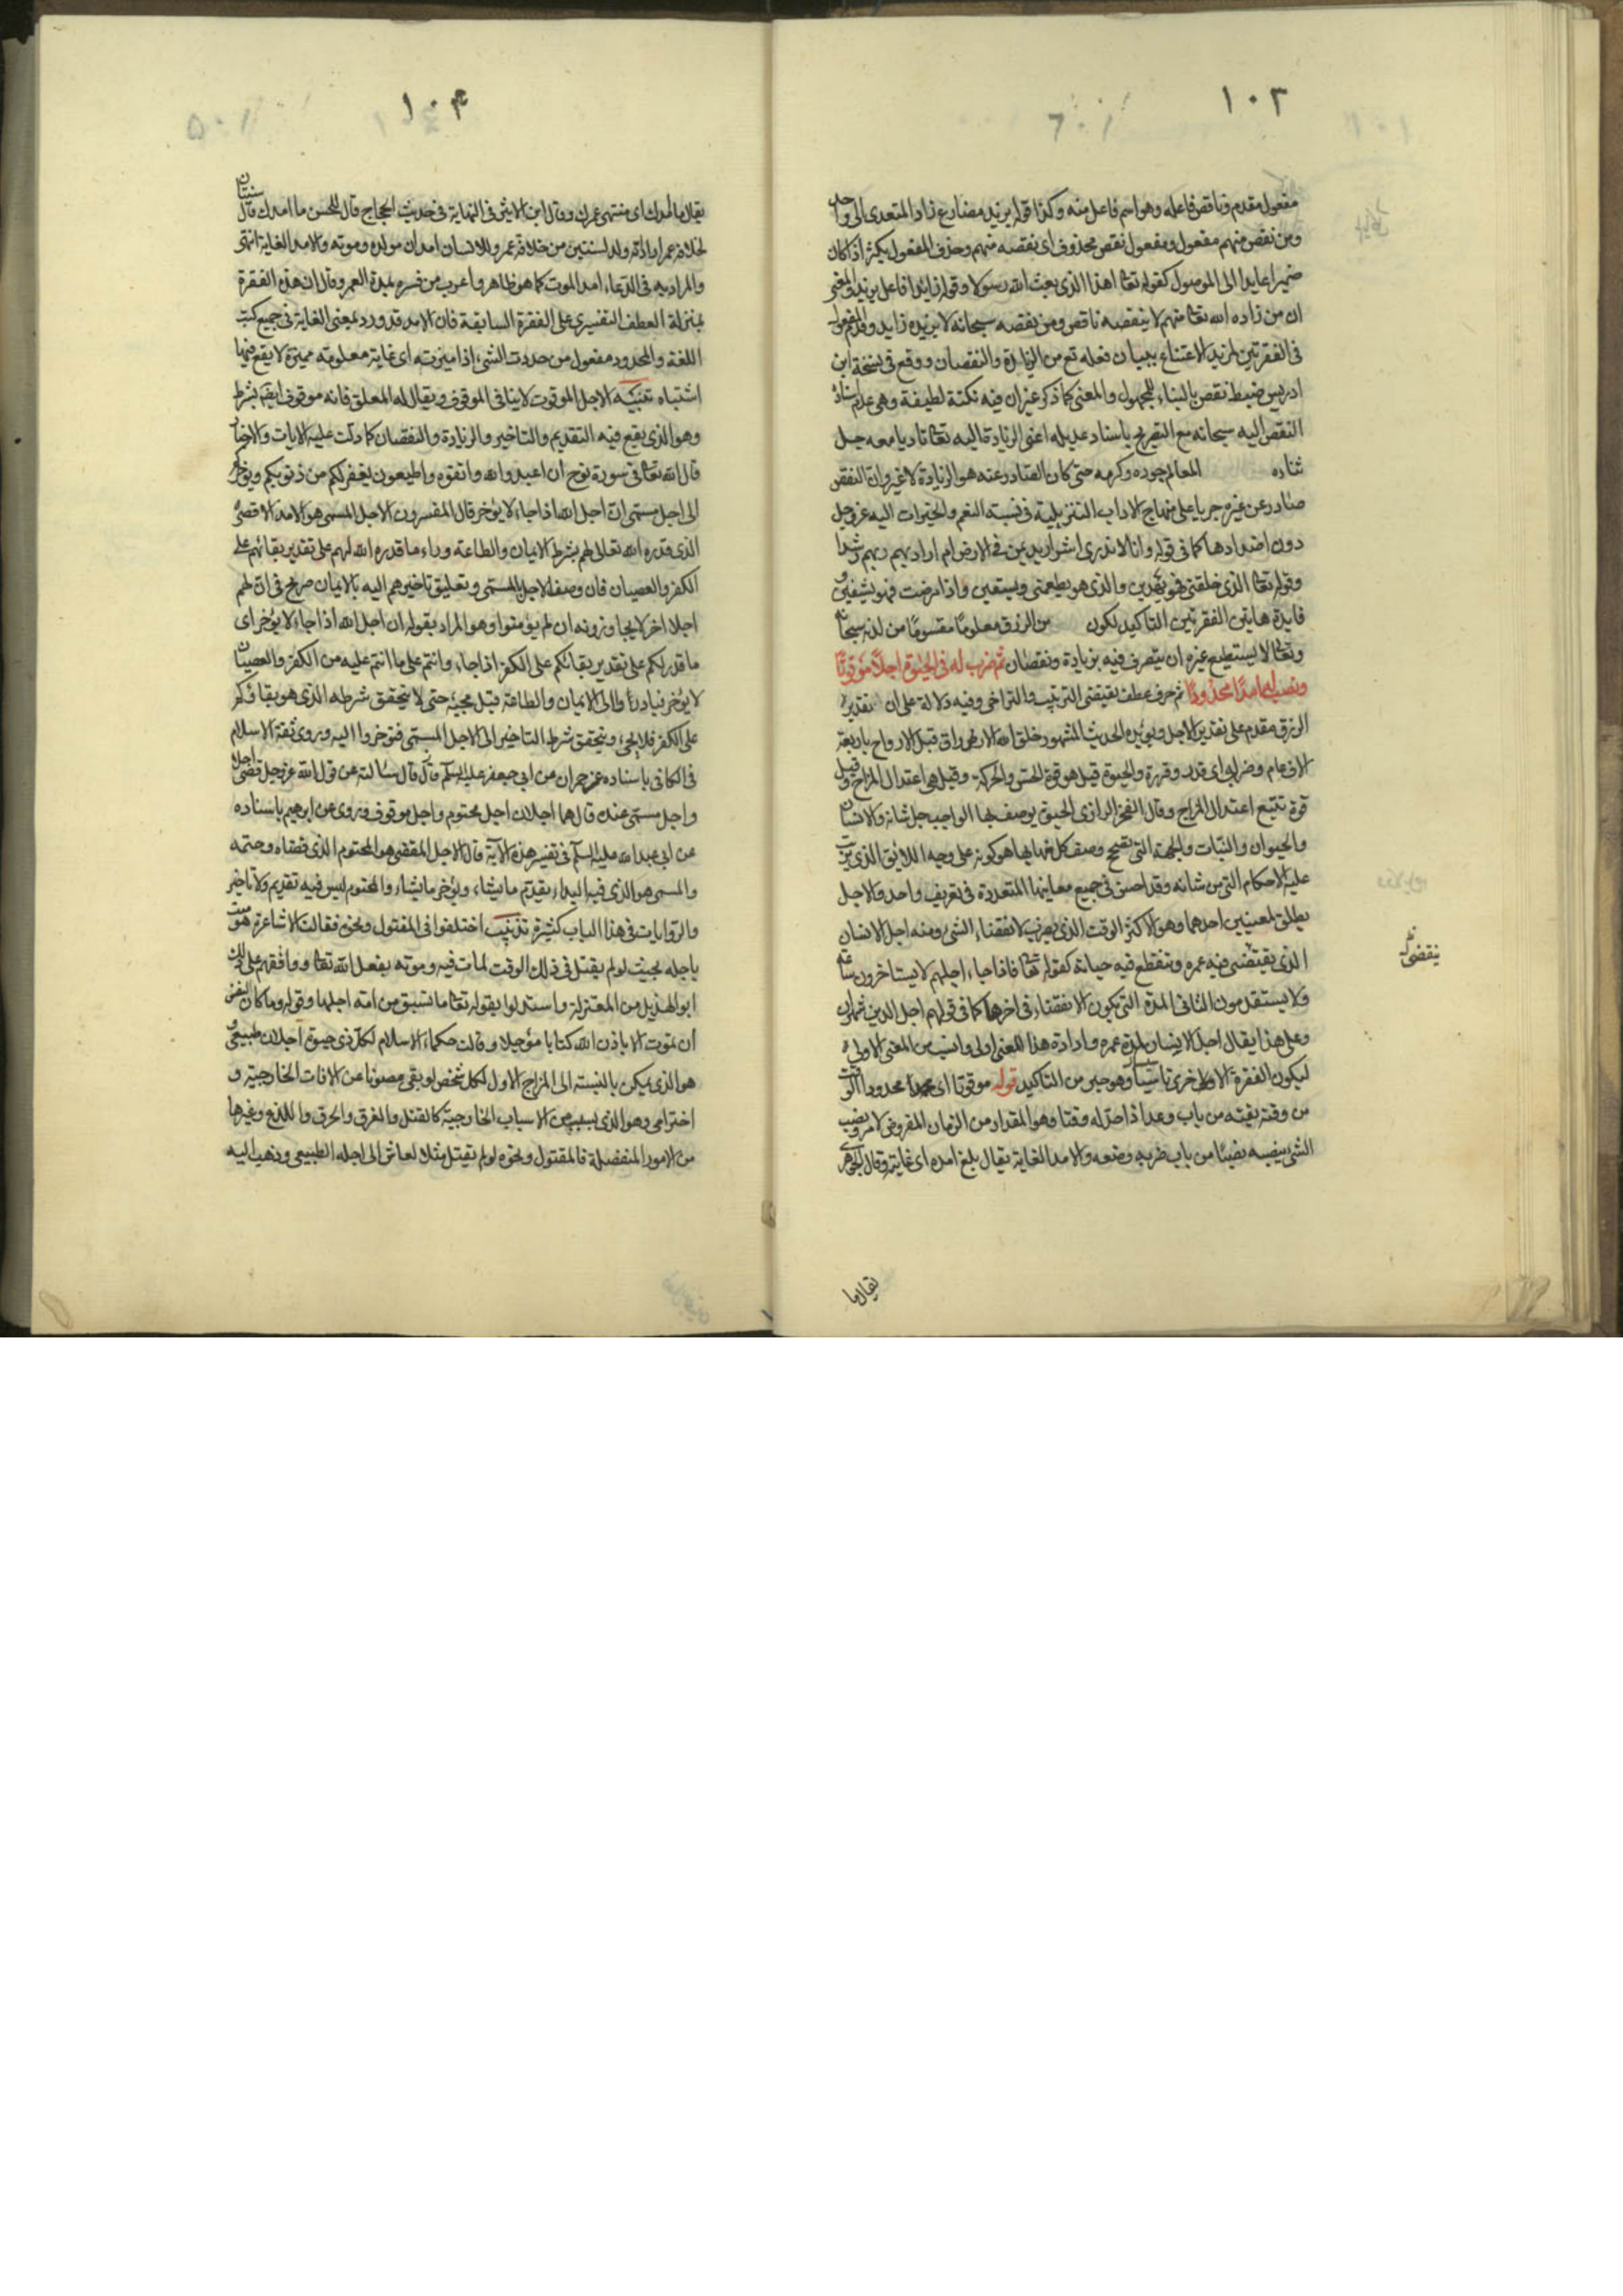 ١٠٣
مفعول مقدم وناقص فاعله وهو اسم فاعل منه وكذا قوله يزيد مضارع زاد المتعدى الى واحد
ومن نقص منهم مفعول ومفعول نقص محذوف اى نقصه منهم وحذف المفعول يكثر اذا كان
ضميرا عايدا الى الموصول كقوله تعالى اهذا الذى بعث الله رسولا وقوله زايد فاعل يزيد والمعنى
ان من زاده الله تعالى منهم لا ينقصه ناقص ومن نقصه سبحانه لا يزيده زايد وقدم المفعول
فى الفقرتين لمزيد الاعتناء ببيان فعله تع من الزيادة والنقصان ووقع فى نسخة ابن
ادريس ضبط نقص بالبناء للمجهول والمعنى كما ذكر غير ان فيه نكتة لطيفة وهى عدم اسناد
النقص اليه سبحانه مع التصريح باسناد عديله اعنى الزيادة اليه تعالى تاديا معه جل
ثناره المعالم جوده وكرمه حتى كان الصادر عنه هو الزيادة لا غير وان النقص
صادر عن غيره جريا على منهاج الاداب التنزيلية فى نسبة النعم والخيرات اليه عز وجل
دون اضدادها كما فى قوله وانا لا ندرى اشر اريد بمن فى الارض ام اراد بهم ربهم رشدا
وقوله تعالى الذى خلقنى فهو يهدين والذى هو يطعمنى ويسقين واذا مرضت فهو يشفين
فايدة هاتين الفقرتين التاكيد لكون من الرزق معلوما مقسوما من لدنه سبحانه
وتعالى لا يستطيع غيره ان يتصرف فيه بزيادة ونقصان ثم ضرب له فى الحيوة اجلا موقوتا
ونصب له امدا محدودا ثم حرف عطف يقتضى الترتيب والتراخى وفيه دلالة على ان تقدير
الرزق مقدم على تقدير الاجل ويؤيده الحديث المشهور خلق الله الارزاق قبل الارواح باربعة
الاف عام وضرب اى قدر وقرره والحيوة قيل هو قوة الحس والحركة وقيل هى اعتدال المزاج وقيل
قوة تتبع اعتدال المزاج وقال الفخر الرازى الحيوة يوصف بها الواجب جل شانه والانسان
والحيوان والنبات والجهة التى تصحح وصف كل منها بها هو كونه على وجه اللائق الذى يترتب
عليه الاحكام التى من شانه وقد احسن فى جميع معانيها المتعددة فى تعريف واحد والاجل
يطلق لمعنيين احدهما وهو الاكثر الوقت الذى يضرب لانقضاء الشى ومنه اجل الانسان
الذى يقتضى فيه عمره وتنقطع فيه حياته كقوله تعالى فاذا جاء اجلهم لا يستاخرون ساعة
ولا يستقدمون الثانى المدة التى يكون الانقضاء فى اخرها كما فى قولهم اجل الدين شهران
وعلى هذا يقال اجل الانسان لمدة عمره وارادة هذا المعنى اولى وانسب من المعنى الاول
ليكون الفقرة الاخرى تاسيسا وهو خير من التاكيد قوله موقوتا اى محدودا الوقت
من وقته يقته من باب وعد اذا حد له وقتا وهو المقدار من الزمان المفروض لامر ونصب
الشى ينصبه نصبا من باب ضرب رفعه والامد الغاية يقال بلغ امده اى غايته وقال الجوهرى
ينقضى
يقال ما
١٠٤
يقال ما امدك اى منتهى عمرك وقال ابن الاثير فى النهاية فى حديث الحجاج قال للحسن ما امدك قال سنتان
لخلافة عمر اراد انه ولد لسنتين من خلافة عمر وللانسان امدان مولده وموته والامد الغاية انتهى
والمراد به فى الدعاء امد الموت كما هو ظاهر واعرب من فسره بمدة العمر وقال ان هذه الفقرة
بمنزلة العطف التفسيرى على الفقرة السابقة فان الامد قد ورد بمعنى الغاية فى جميع كتب
اللغة والمحدود مفعول من حددت الشى اذا ميزته اى غاية معلومة مميزة لا يقع فيها
اشتباه تنبيه الاجل الموقوت لا ينافى الموقوف ويقال له المعلق فانه موقوف ايضا بشرط
وهو الذى يقع فيه التقديم والتاخير والزيادة والنقصان كما دلت عليه الايات والاخبار
قال الله تعالى فى سورة نوح ان اعبدوا الله واتقوه واطيعون يغفر لكم من ذنوبكم ويؤخركم
الى اجل مسمى ان اجل الله اذا جاء لا يؤخر قال المفسرون الاجل المسمى هو الامد الاقصى
الذى قدره الله تعالى لهم بشرط الايمان والطاعة وراء ما قدره الله لهم على تقدير بقائهم على
الكفر والعصيان فان وصف الاجل بالمسمى وتعليق تاخيرهم اليه بالايمان صريح فى ان لهم
اجلا اخر لا يجاوزونه ان لم يؤمنوا وهو المراد بقوله ان اجل الله اذا جاء لا يؤخر اى
ما قدر لكم على تقدير بقائكم على الكفر اذا جاء وانتم على ما انتم عليه من الكفر والعصيان
لا يؤخر فبادروا الى الايمان والطاعة قبل مجيئه حتى لا يتحقق شرطه الذى هو بقاؤكم
على الكفر فلا يجئ ويتحقق شرط التاخير الى الاجل المسمى فتؤخروا اليه وروى ثقة الاسلام
فى الكافى باسناده عن حمران عن ابى جعفر عليه السلم قال قال سئالته عن قول الله عز وجل قضى اجلا
واجل مسمى عنده قال هما اجلان اجل محتوم واجل موقوف وروى عن ابرهيم باسناده
عن ابى عبد الله عليه السلم فى تفسير هذه الآية قال الاجل المقضى هو المحتوم الذى قضاه وحتمه
والمسمى هو الذى فيه البداء يقدم ما يشاء ويؤخر ما يشاء والمحتوم ليس فيه تقديم ولا تاخير
والروايات فى هذا الباب كثيرة تذنيب اختلفوا فى المقتول ونحوه فقالت الاشاعرة هو ميت
باجله بحيث لو لم يقتل فى ذلك الوقت لمات فيه وموته بفعل الله تعالى ووافقهم على ذلك
ابو الهذيل من المعتزلة واستدلوا بقوله تعالى ما تسبق من امة اجلها وقوله وما كان لنفس
ان تموت الا باذن الله كتابا مؤجلا وقالت حكماء الاسلام لكل ذى حيوة اجلان طبيعى
هو الذى يمكن بالنسبة الى المزاج الاول لكل شخص لو بقى مصونا عن الافات الخارجية و
اخترامى وهو الذى بسبب من الاسباب الخارجية كالقتل والغرق والحرق واللدغ وغيرها
من الامور المنفصلة فالمقتول ونحوه لو لم يقتل مثلا لعاش الى اجله الطبيعى وذهب اليه